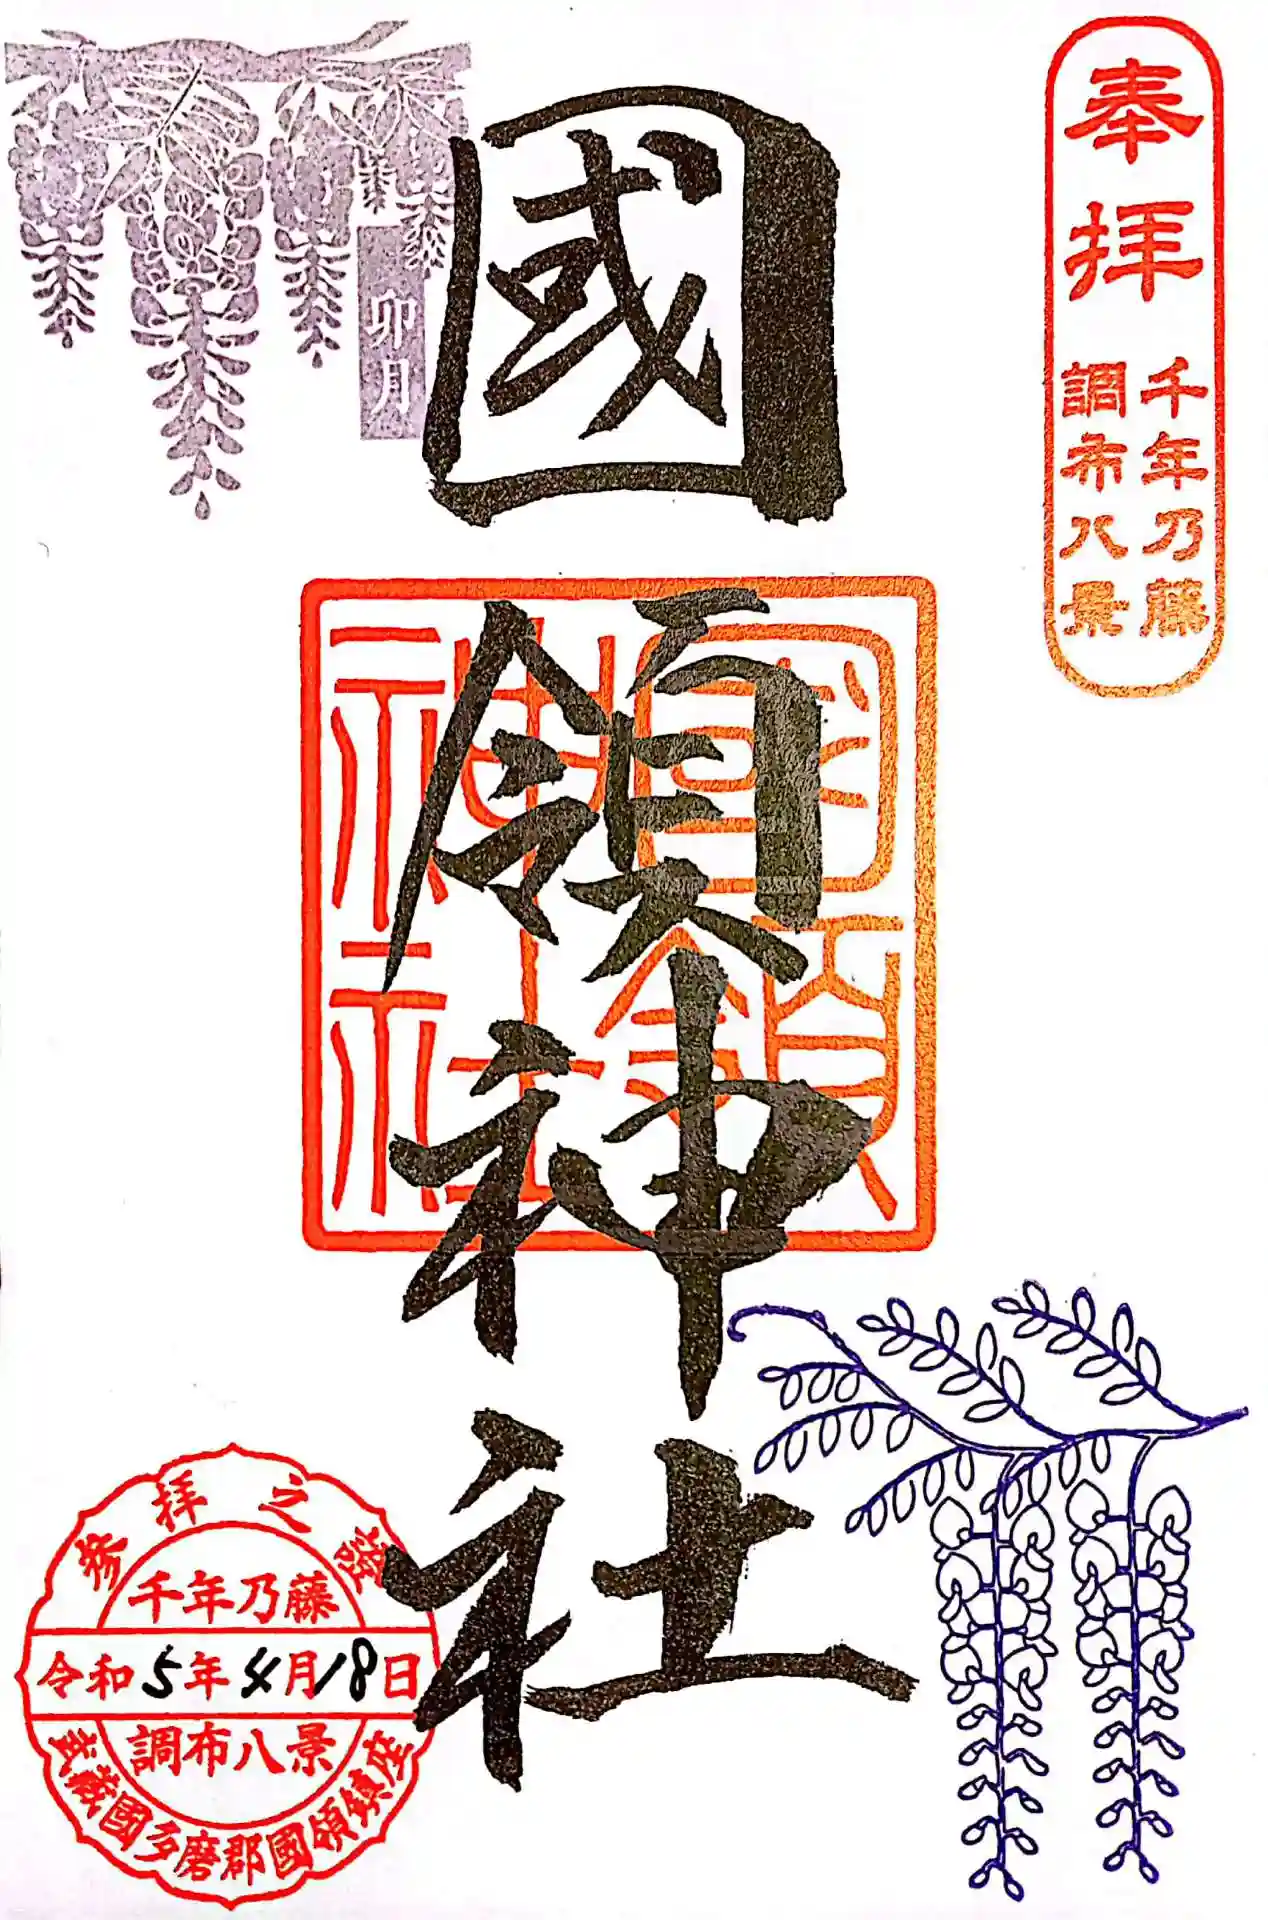 奉拝
千年乃藤
調布八景
國領神社
國領神社
卯月
参拝之證
千年乃藤
令和5年4月18日
調布八景
武蔵國多磨郡國領鎮座